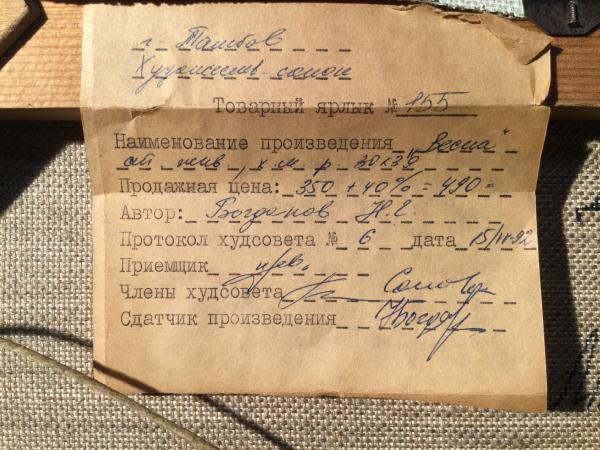 г. Тамбов
Художествен. салон
Товарный ярлык № 155
Наименование произведения "Весна"
ст. жив. х.м. р. 20х30
Продажная цена: 350 + 40% = 490=
Автор: Богданов Н.Е.
Протокол худсовета № 6 дата 15/IV-92
Приемщик
Члены худсовета
Сдатчик произведения